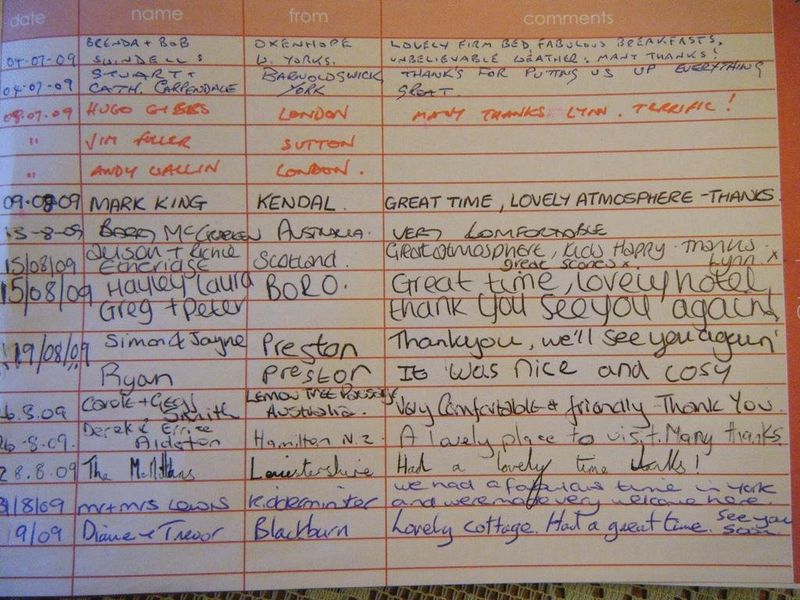 date name from comments
BRENDA + BOB OXENHOPE LOVELY FIRM BED, FABULOUS BREAKFASTS,
04-07-09 SWINDELLS W. YORKS. UNBELIEVABLE WEATHER. MANY THANKS!
STUART + BARNOLDSWICK THANKS FOR PUTTING US UP EVERYTHING
04-07-09 CATH. CARPENDALE YORK GREAT
09.07.09 HUGO GIBBS LONDON MANY THANKS LYNN. TERRIFIC!
" JIM FULLER SUTTON
" ANDY WALLIN LONDON.
09.08.09 MARK KING KENDAL. GREAT TIME, LOVELY ATMOSPHERE - THANKS.
15-8-09 AUSTRALIA. VERY COMFORTABLE
Alison + Great atmosphere, kids happy. Thanks
15/08/09 Etheridge Scotland. great scones x. Lynn x
15/08/09 Hayley Laura BORO. Great time, lovely hotel
Greg + Peter thank you see you again!
19/08/09 Simon & Jayne Preston Thankyou, we'll see you again!
Ryan Preston It was nice and cosy
26.8.09 Carole + Smith LEMON TREE PASSAGE Australia. Very Comfortable & friendly Thank You
Derek &
26-8.09. Aldeton Hamilton N.Z. A lovely place to visit. Many thanks.
28.8.09 The Leicestershire Had a lovely time
we had a fabulous time in York
31/8/09 mr + mrs Lewis Kidderminster and were made very welcome here
1/9/09 Diane & Trevor Blackburn Lovely cottage. Had a great time. See you soon.